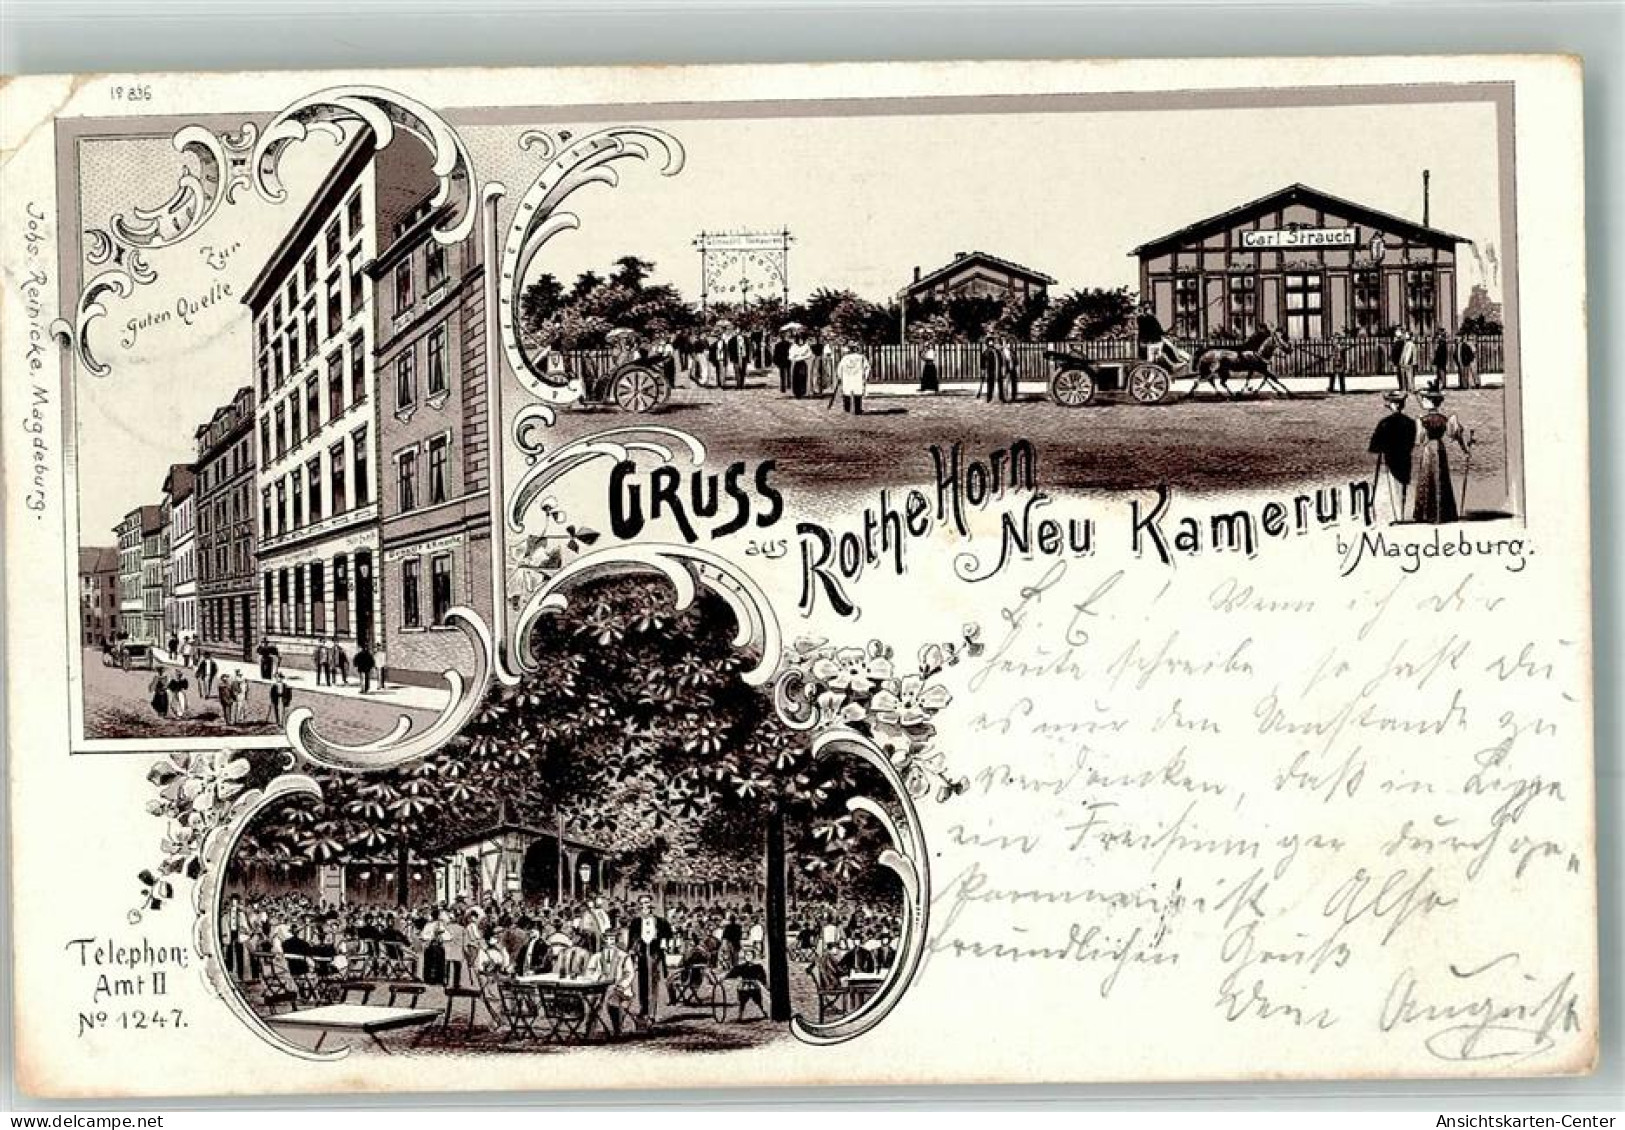 12836
Johs. Reinicke, Magdeburg.
Zur
Guten Quelle
Carl Strauch
GRUSS
aus
Rothe Horn
Neu Kamerun
b/Magdeburg.
L. E.! Wenn ich dir
heute schreibe, so hast du
es nur dem Umstande zu
verdanken, daß in Lippe
ein Freisinniger durchge-
kommen ist. Also
freundlichen Gruß
Dein August
Telephon:
Amt II
No 1247.
delcampe.net
Ansichtskarten-Center